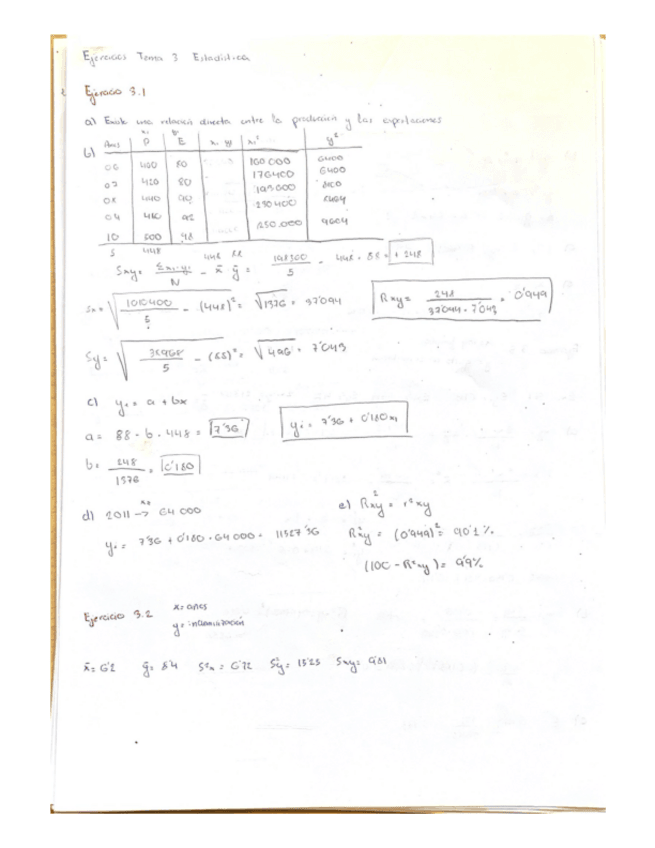 Ejercicios Tema 3 Estadística
Ejercicio 3.1
a) Existe una relación directa entre la producción y las exportaciones
b) Años P E xi yi xi² y²
06 400 80 160 000 6400
07 420 80 176400 6400
08 440 90 193600 8100
480 230400
460 92
10 500 98 250.000 9604
5 448
448 88
Sxy = Σxi·yi / N - x̄ ȳ = 198360 / 5 - 448 · 88 = + 248
Sx = √ 1010400 / 5 - (448)² = √1376 = 37'094
Rxy = 248 / 37'044 · 7'043 = 0'949
Sy = √ 38968 / 5 - (88)² = √49'6 = 7'043
c) yi = a + bx
a = 88 - b · 448 = 7'36
yi = 7'36 + 0'180 xi
b = 248 / 1376 = 0'180
d) 2011 → 64 000
yi = 7'36 + 0'180 · 64 000 = 11527'36
e) R²xy = r² xy
R²xy = (0'949)² = 90'1 %
(100 - R²xy) = 9'9%
Ejercicio 3.2 x = años
y = indemnización
x̄ = 6'2 ȳ = 8'4 S²x = 6'72 S²y = 15'25 Sxy = 9'81